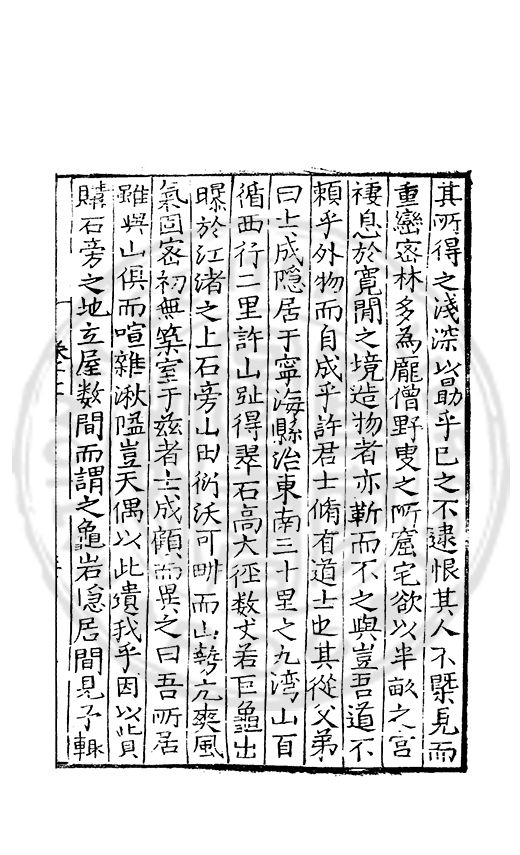 其所得之淺深以助乎已之不逮恨其人不槩見而
重巒密林多為龐僧野叟之所窟宅欲以半畝之宮
棲息於寬閒之境造物者亦靳而不之與豈吾道不
頼乎外物而自成乎許君士脩有道士也其從父弟
曰士成隠居于寧海縣治東南三十里之九湾山百
循西行二里許山趾得翠石高大徑数丈若巨龜出
曝於江渚之上石旁山田衍沃可畊而山勢亢爽風
氣固密初無築室于兹者士成顧而異之曰吾所居
雖與山俱而喧雜湫隘豈天偶以此遺我乎因以貲
購石旁之地立屋数間而謂之龜岩隠居間見予輙